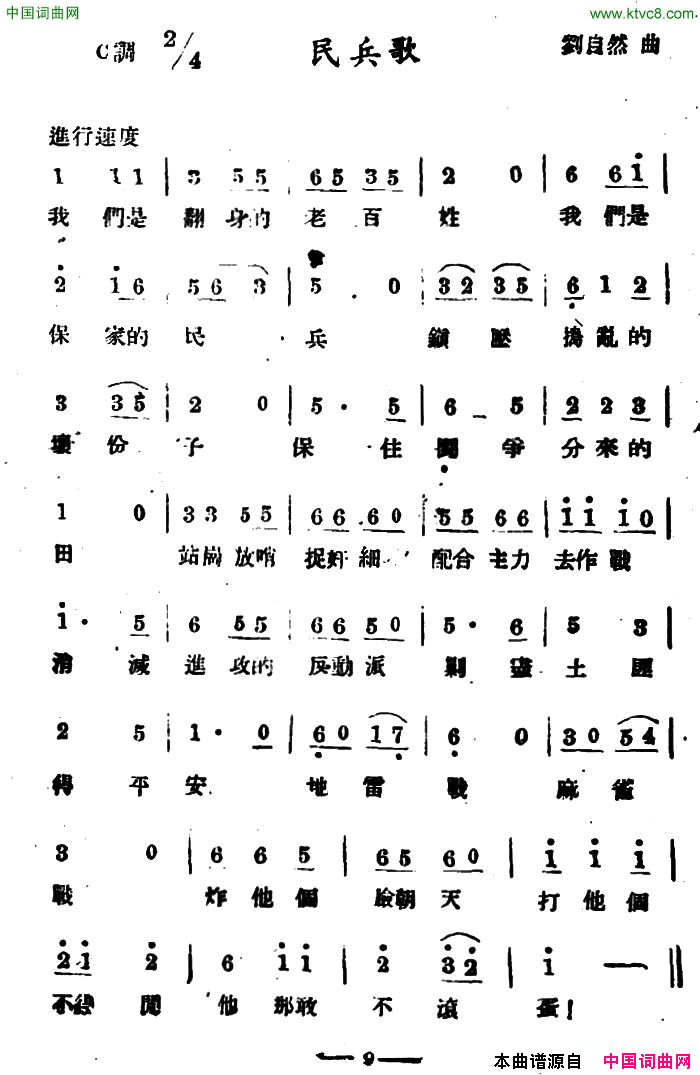 中国词曲网
www.ktvc8.com
C調 2/4 民兵歌 劉自然 曲
進行速度
1 1 1 1 | 3 5 5 | 6 5 3 5 | 2 0 | 6 6 1 |
我們是 翻身的 老百姓 我們是
2 1 6 | 5 6 3 | 5 0 | 3 2 3 5 | 6 1 2 |
保家的民兵 鎮壓搗亂的
3 3 5 | 2 0 | 5 · 5 | 6 5 | 2 2 3 |
壞份子 保住鬪爭分來的
1 0 | 3 3 5 5 | 6 6 6 0 | 5 5 6 6 | 1 1 1 0 |
田 站崗放哨 捉奸細 配合主力 去作戰
1 · 5 | 6 5 5 | 6 6 5 0 | 5 · 6 | 5 3 |
消滅進攻的 反動派 剿盡土匪
2 5 | 1 · 0 | 6 0 1 7 | 6 0 | 3 0 5 4 |
得平安 地雷戰 麻雀
3 0 | 6 6 5 | 6 5 6 0 | 1 1 1 |
戰 炸他個 臉朝天 打他個
2 1 2 | 6 1 1 | 2 3 2 | 1 — ||
不得閒 他那敢不滾蛋!
9
本曲谱源自 中国词曲网